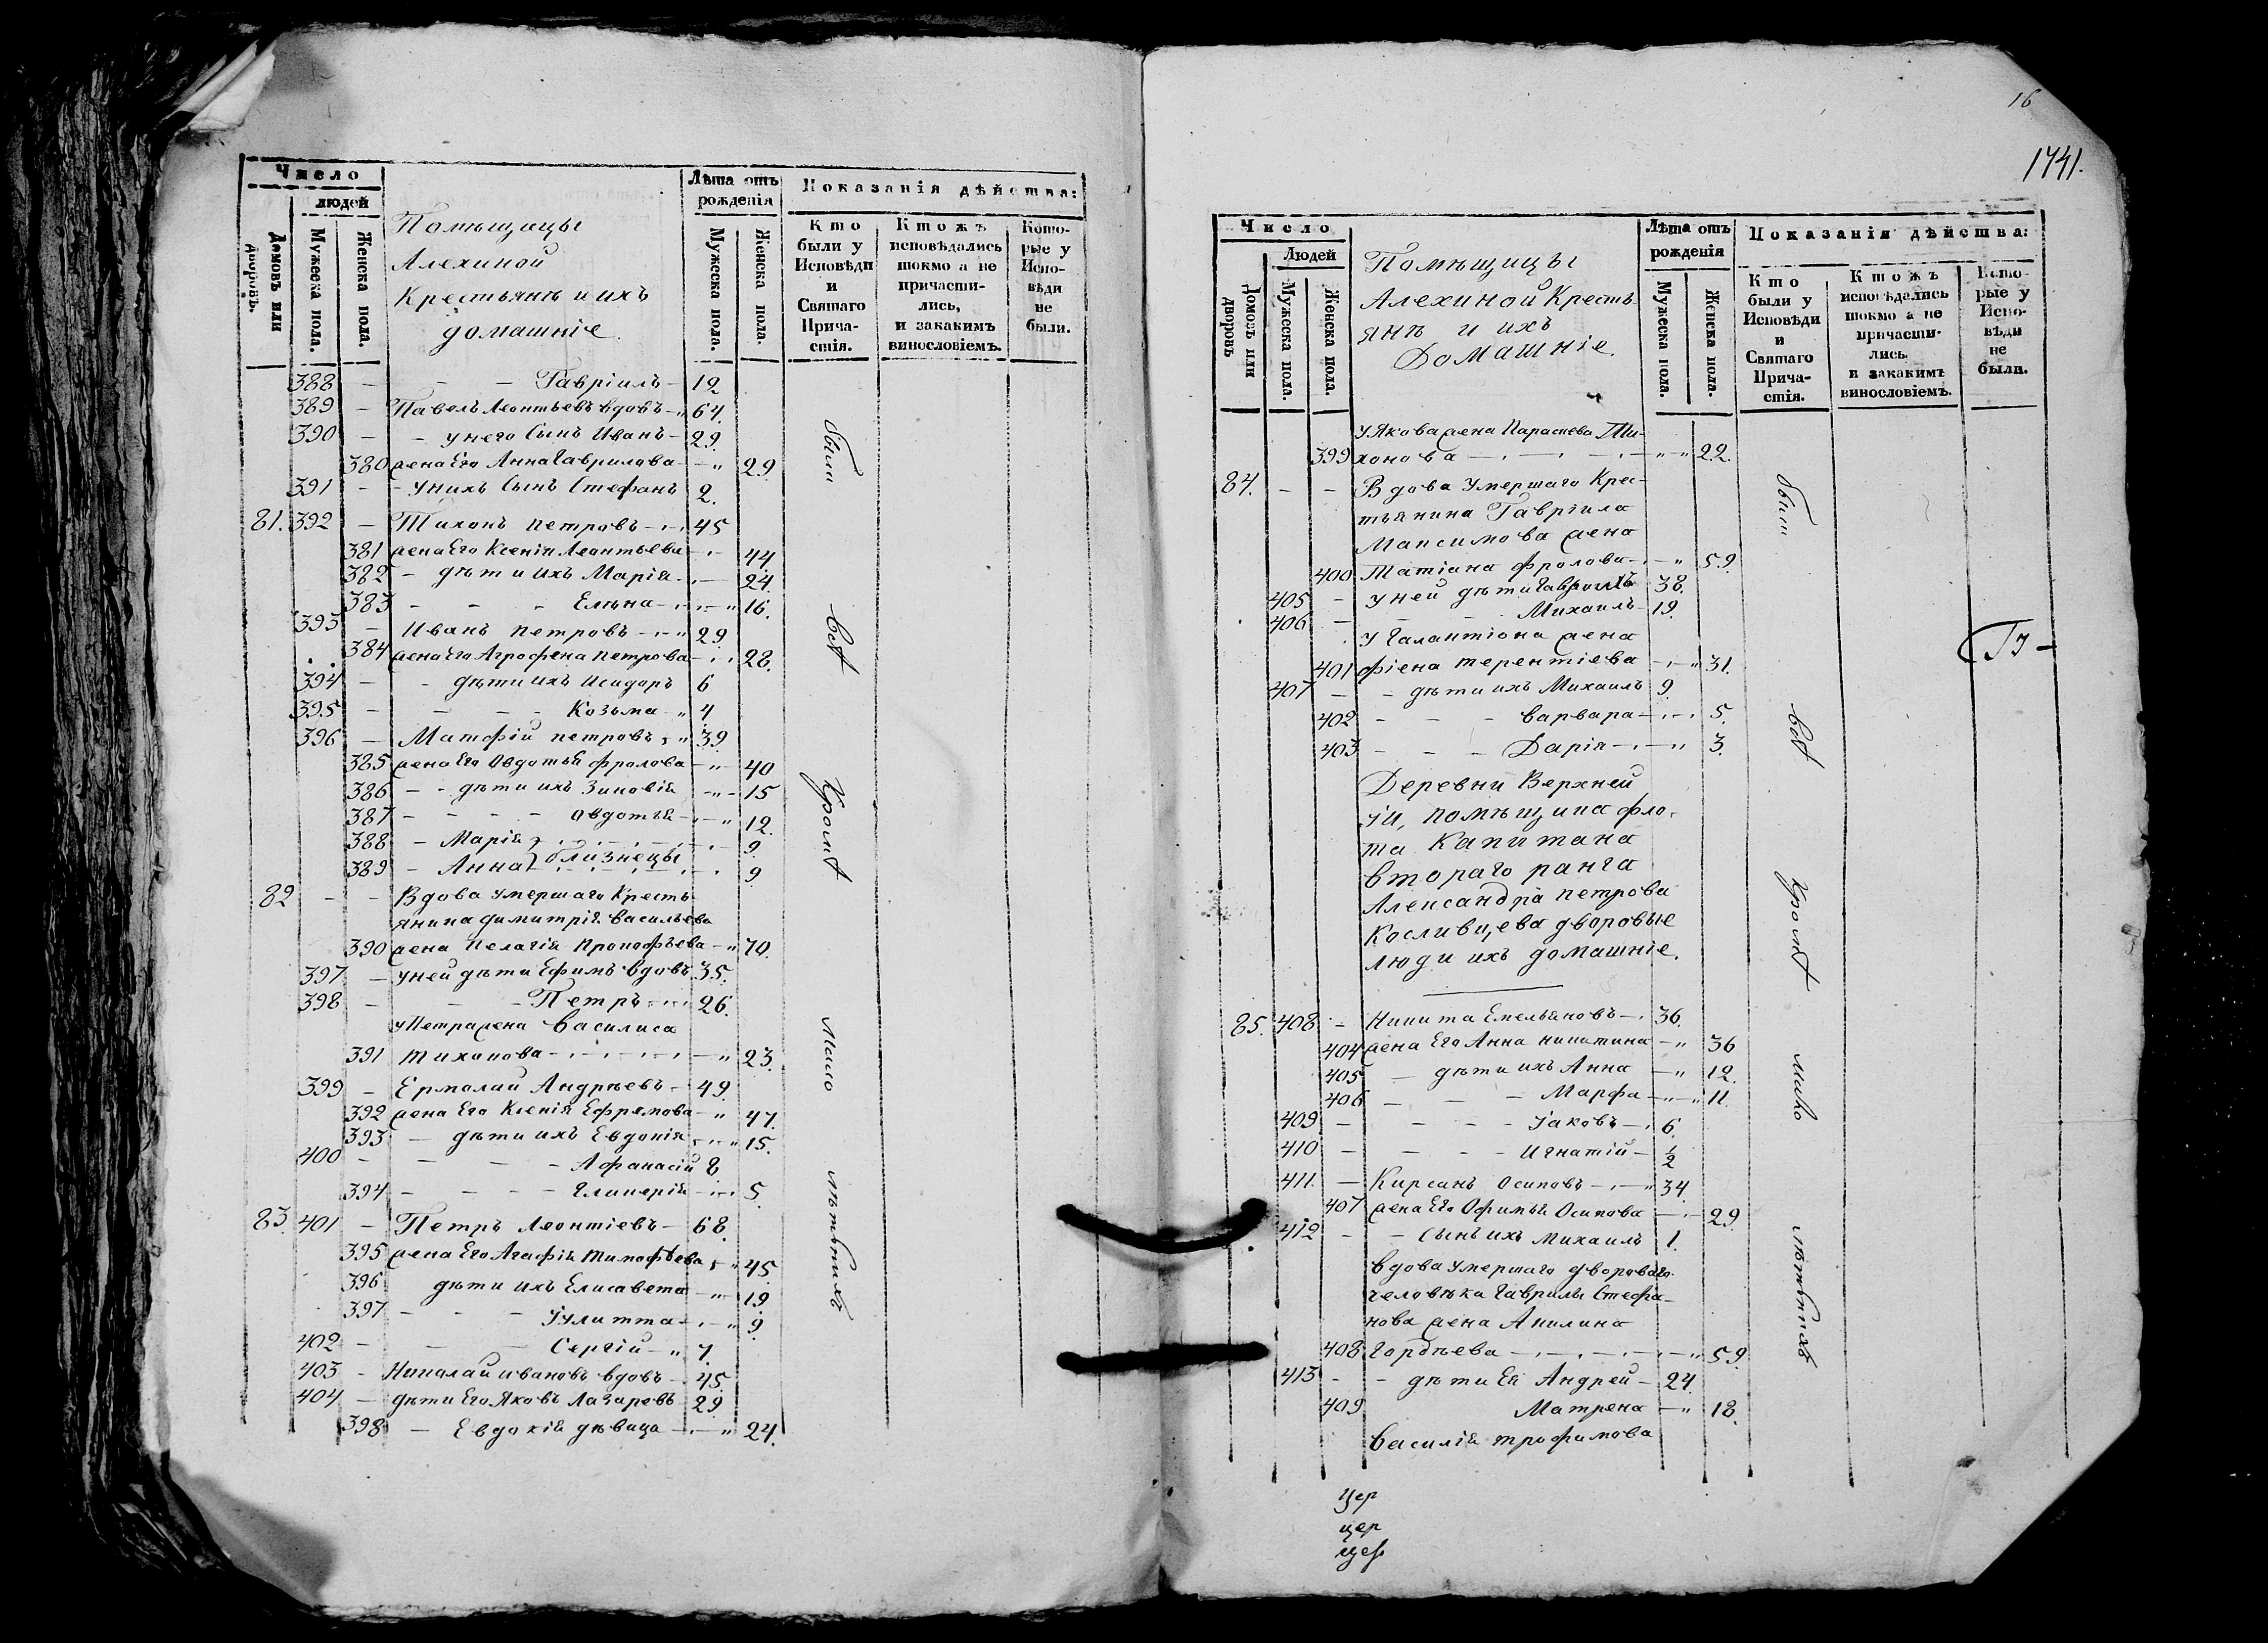 Число
людей
Домовъ или дворовъ.
Мужеска пола.
Женска пола.
Помѣщицы
Алехиной
Крестьянъ и ихъ
домашніе.
Лѣта отъ рожденія
Мужеска пола.
Женска пола.
Показанія дѣйства:
Кто были у Исповѣди и Святаго Причастія.
Ктожъ исповѣдались токмо а не причастились, и закакимъ винословіемъ.
Которые у Исповѣди не были.
388 - - - Гавріилъ - 12
389 - Павелъ Леонтьевъ вдовъ - 64
390 - - у него Сынъ Иванъ - 29
380 жена Его Анна Гаврилова - 29
391 - - У нихъ Сынъ Стефанъ 2.
81. 392 - Тихонъ Петровъ - 45
381 жена Его Ксенія Леонтьева - 44
382 - дѣти ихъ Марія - 24
383 - - - Елена - 16.
393 - Иванъ Петровъ - 29
384 жена Его Агрофена Петрова - 28.
394 - - дѣти ихъ Исидоръ 6
395 - - - - Козьма - 4
396 - Матфій Петровъ - 39
385 жена Его Овдотья Фролова - 40
386 - - дѣти ихъ Зиновія - 15
387 - - - - Овдотья - 12.
388 - Марія - 9
близнецы
389 - Анна - 9
82 - - Вдова умершаго Кресть
янина Димитрія Васильева
390 жена Пелагія Прокофьева - 70.
397 - у ней дѣти Ефимъ вдовъ 35.
398 - - - Петръ - 26.
у Петра жена Василиса
391 Тихонова - 23.
399 - Ермолай Андрѣевъ - 49.
392 жена Его Ксенія Ефремова - 47.
393 - дѣти ихъ Евдокія - 15.
400 - - - - Афанасій 8
394 - - - - Гликерія - 5
83. 401 - Петръ Леонтіевъ - 68.
395 жена Его Агафія Тимофѣева - 45
396 дѣти ихъ Елисавета - 19
397 - - - Улитта - 9
402 - - - Сергій - 7.
403 - Николай Ивановъ вдовъ - 45.
404 - дѣти Его Яковъ Лазаревъ 29
398 - Евдокія дѣвица - 24.
были
всѣ
Кромѣ
мало
лѣтнихъ
16
1741.
Число
Людей
Домовъ или дворовъ
Мужеска пола.
Женска пола.
Помѣщицы
Алехиной Кресть
янъ и ихъ
Домашніе.
Лѣта отъ рожденія
Мужеска пола.
Женска пола.
Показанія дѣйства:
Кто были у Исповѣди и Святаго Причастія.
Ктожъ исповѣдались токмо а не причастились. и закакимъ винословіемъ.
Которые у Исповѣди не были.
У Якова жена Параскева Ти-
399 хонова - 22.
84. - - Вдова Умершаго Крес-
тьянина Гавріила
Максимова жена
400 Татіана Фролова - 59
405 - у ней дѣти 38.
406 - - - Михаилъ - 19.
У Галактіона жена
401 фіена Терентіева - 31.
407 - - дѣти ихъ Михаилъ 9.
402 - - - Варвара - 5.
403 - - - Дарія - 3.
Деревни Верхней
помѣщика фло-
та Капитана
втораго ранга
Александра Петрова
Косливцева дворовые
люди ихъ домашніе.
85. 408 - Никита Емельяновъ - 36.
404 жена Его Анна Никитина - 36
405 - дѣти ихъ Анна - 12.
406 - - - Марфа - 11.
409 - - - - Іаковъ - 6.
410 - - - - Игнатій - 1/2
411. - Кирсанъ Осиповъ - 34
407 жена Его Офимья Осипова - 29
412 - - Сынъ ихъ Михаилъ 1.
Вдова умершаго двороваго
человѣка Гаврилы Стефа-
нова жена Акилина
408 Гордѣева - 59
413 - - дѣти Ея Андрей - 24
409 Матрена - 18.
Василія Трофимова
были
всѣ
кромѣ
мало
лѣтнихъ
цер
цер
цер